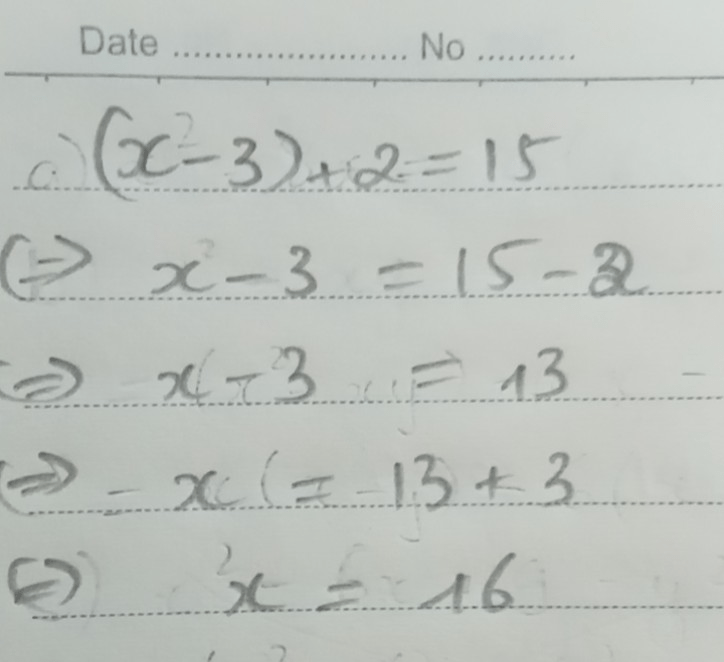 Date ...................... No ..........
a) (x - 3) + 2 = 15
⇔ x - 3 = 15 - 2
⇔ x - 3 = 13
⇔ x = 13 + 3
⇔ x = 16